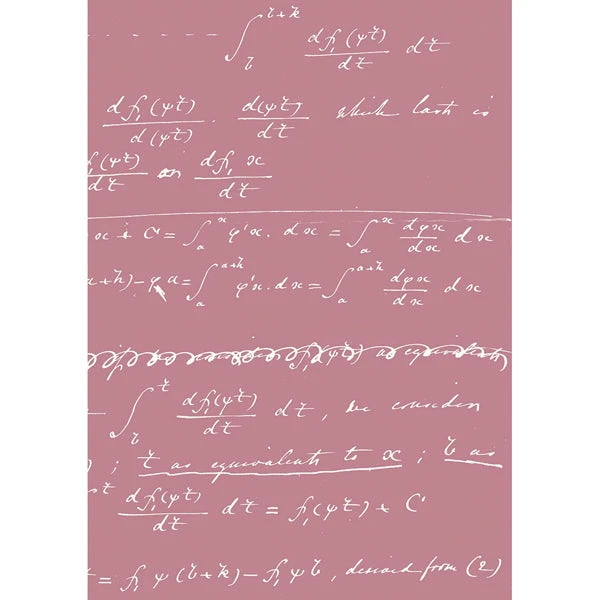 ∫_b^{b+k} df₁(ψt)/dt dt
df₁(ψt)/d(ψt) · d(ψt)/dt which last is
f₁(ψt)/dt or df₁x/dt
x + C = ∫_a^x φ'x. dx = ∫_a^x dφx/dx dx
(a+h) - φa = ∫_a^{a+h} φ'x. dx = ∫_a^{a+h} dφx/dx dx
f₁(ψt) as equivalent
∫_b^t df₁(ψt)/dt dt, we consider
); t as equivalent to x; b as
t df₁(ψt)/dt dt = f₁(ψt) + C
= f₁ψ(b+k) - f₁ψb, derived from (2)